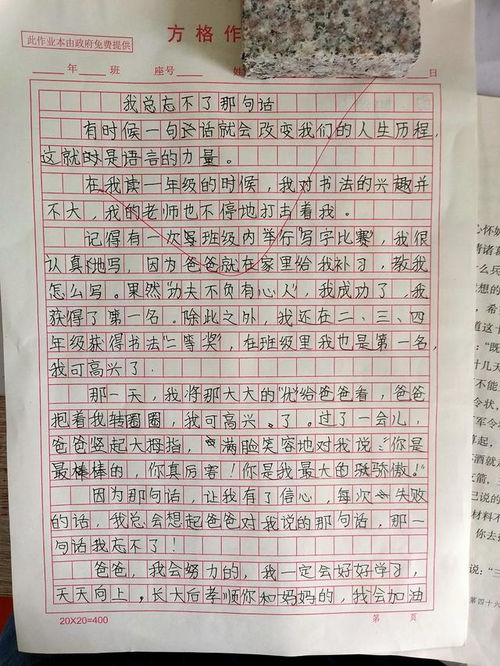 此作业本由政府免费提供
方格作
年 班 座号 日
我总忘不了那句话
有时候一句话就会改变我们的人生历程，
这就是语言的力量。
在我读一年级的时候，我对书法的兴趣并
不大，我的老师也不停地打击着我。
记得有一次班级内举行"写字比赛"，我很
认真地写，因为爸爸就在家里给我补习，教我
怎么写。果然"功夫不负有心人"，我成功了，我
获得了第一名。除此之外，我还在二、三、四
年级获得书法"二等奖"，在班级里我也是第一名，
我可高兴了．
那一天，我将那大大的"优"给爸爸看，爸爸
抱着我转圈圈，我可高兴。了。过了一会儿，
爸爸竖起大拇指，满脸笑容地对我说："你是
最棒棒的，你真厉害！你是我最大的骄傲！"
因为那句话，让我有了信心，每次失败
的话，我总会想起爸爸对我说的那句话，那一
句话我忘不了！
爸爸，我会努力的，我一定会好好学习，
天天向上，长大后孝顺你和妈妈的，我会加油
20X20=400 第 页
心怀如
什么兵
想的
，希
道这
："既
十几天
不能
令状，
军令
算起，
酒就
支箭，
已说的
材料不
你去
说："三
第四十六